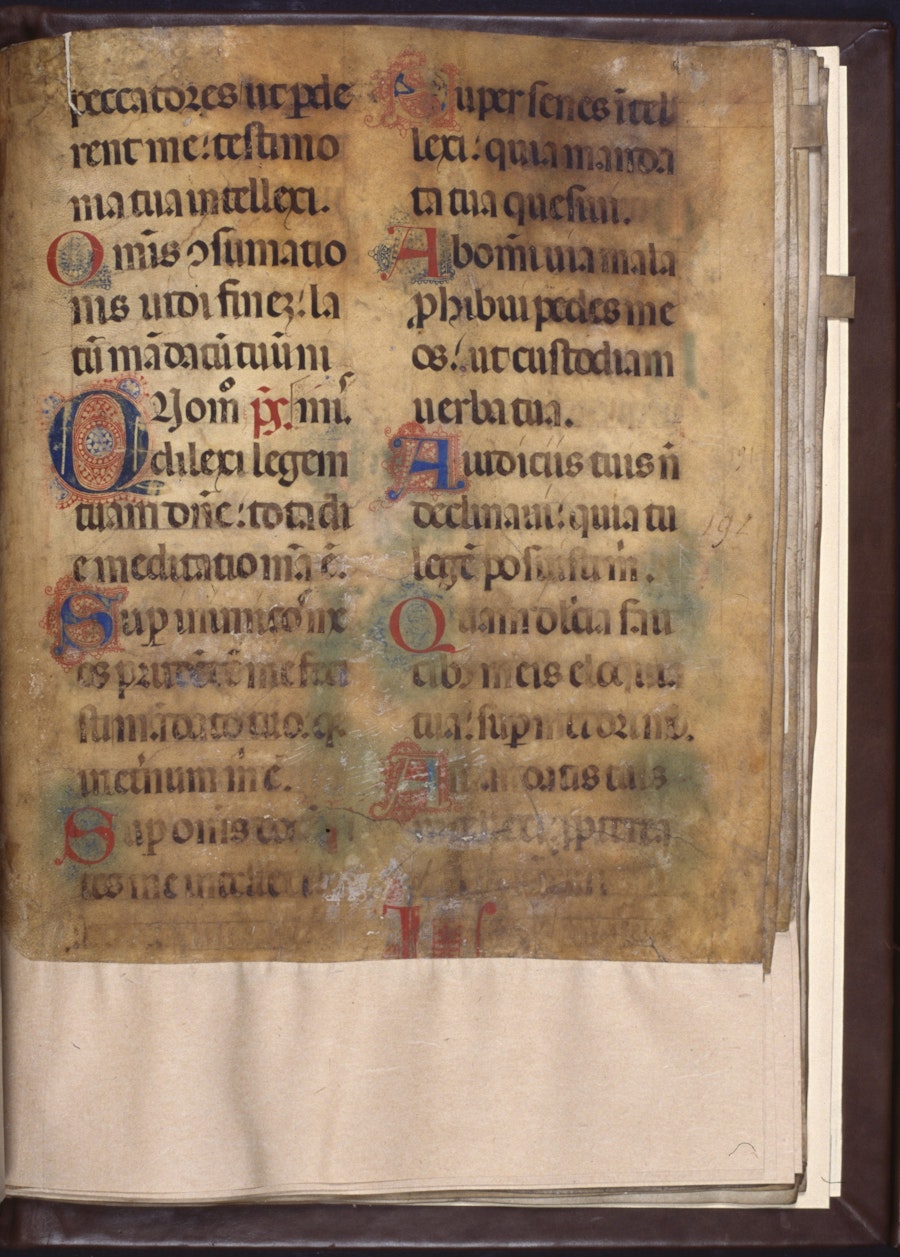 peccatores ut pde
rent me: testimo
nia tua intellexi.
Omīs ↄsumatio
nis uidi finez: la
tū mādatū tuū ni
Quom̄ p̄s.
dilexi legem
tuam dn̄e: tota di
e meditatio m̄a ē.
Sup inimicos
os prudētē me feci
sti mādato tuo: q
in et̄num m ē.
Sup om̄s
tes me intellexi
Super senes ītel
lexi: quia manda
ta tua quesiui.
Ab om̄i uia mala
phibui pedes me
os: ut custodiam
uerba tua.
A iudiciis tuis n̄
declinaui: quia tu
legē posuisti m̄.
Quam dulcia fau
cibꝫ meis eloquia
tua: sup mel ori m̄.
A mandatis tuis
intellexi
191